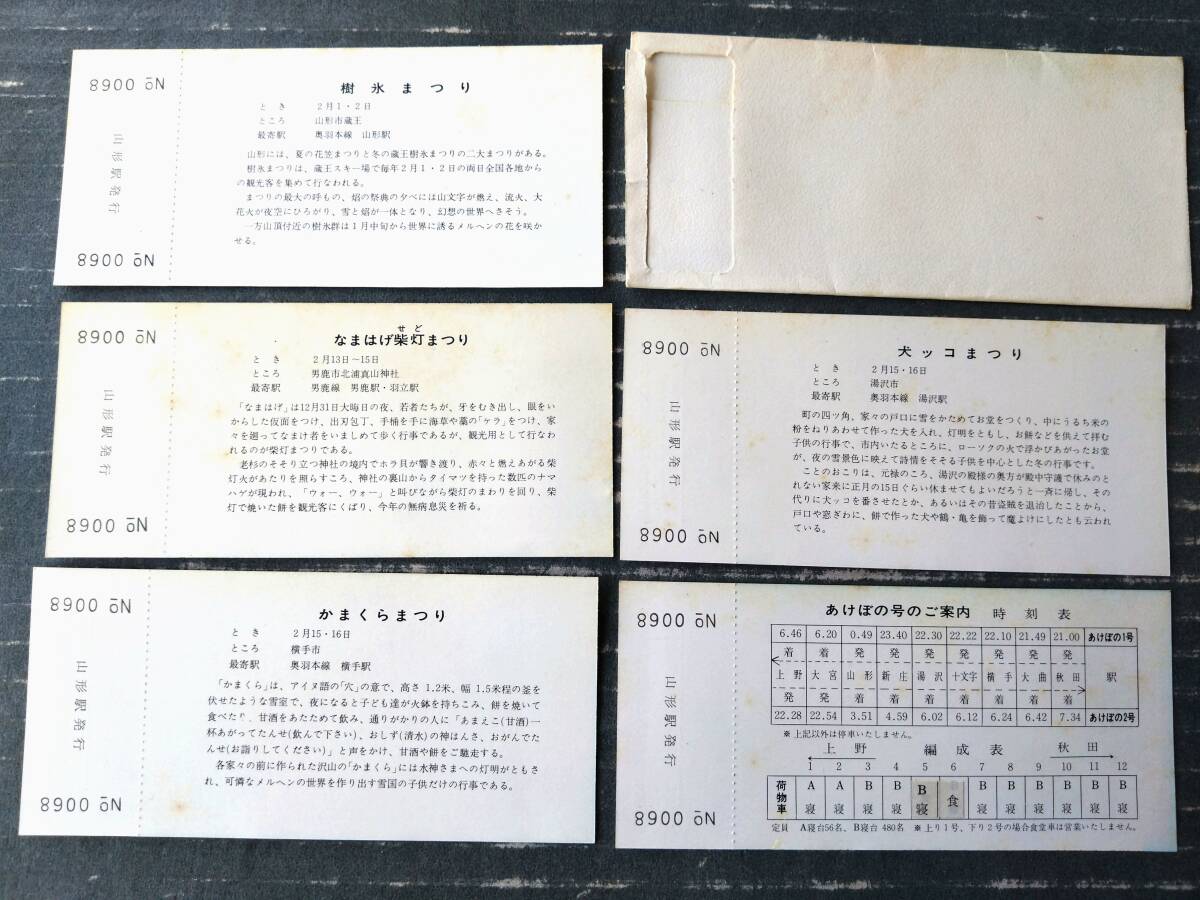 No 0068
山形駅発行
No 0068
樹氷まつり
とき 2月1・2日
ところ 山形市蔵王
最寄駅 奥羽本線 山形駅
山形には、夏の花笠まつりと冬の蔵王樹氷まつりの二大まつりがある。
樹氷まつりは、蔵王スキー場で毎年2月1・2日の両日全国各地から
の観光客を集めて行なわれる。
まつりの最大の呼もの、焰の祭典の夕べには山文字が燃え、流火、大
花火が夜空にひろがり、雪と焰が一体となり、幻想の世界へさそう。
一方山頂付近の樹氷群は1月中旬から世界に誘るメルヘンの花を咲か
せる。
No 0068
山形駅発行
No 0068
せど
なまはげ柴灯まつり
とき 2月13日～15日
ところ 男鹿市北浦真山神社
最寄駅 男鹿線 男鹿駅・羽立駅
「なまはげ」は12月31日大晦日の夜、若者たちが、牙をむき出し、眼をい
からした仮面をつけ、出刃包丁、手桶を手に海草や藁の「ケラ」をつけ、家
々を廻ってなまけ者をいましめて歩く行事であるが、観光用として行なわ
れるのが柴灯まつりである。
老杉のそそり立つ神社の境内でホラ貝が響き渡り、赤々と燃えあがる柴
灯火があたりを照らすころ、神社の裏山からタイマツを持った数匹のナマ
ハゲが現われ、「ウォー、ウォー」と叫びながら柴灯のまわりを回り、柴
灯で焼いた餅を観光客にくばり、今年の無病息災を祈る。
No 0068
山形駅発行
No 0068
犬ッコまつり
とき 2月15・16日
ところ 湯沢市
最寄駅 奥羽本線 湯沢駅
町の四ツ角、家々の戸口に雪をかためてお堂をつくり、中にうるち米の
粉をねりあわせて作った犬を入れ、灯明をともし、お餅などを供えて拝む
子供の行事で、市内いたるところに、ローソクの火で浮かびあがったお堂
が、夜の雪景色に映えて詩情をそそる子供を中心とした冬の行事です。
ことのおこりは、元禄のころ、湯沢の殿様の奥方が殿中守護で休みのと
れない家来に正月の15日ぐらい休ませてもよいだろうと一斉に帰し、その
代りに犬ッコを番させたとか、あるいはその昔盗賊を退治したことから、
戸口や窓ぎわに、餅で作った犬や鶴・亀を飾って魔よけにしたとも云われ
ている。
No 0068
山形駅発行
No 0068
かまくらまつり
とき 2月15・16日
ところ 横手市
最寄駅 奥羽本線 横手駅
「かまくら」は、アイヌ語の「穴」の意で、高さ 1.2米、幅 1.5米程の釜を
伏せたような雪室で、夜になると子ども達が火鉢を持ちこみ、餅を焼いて
食べたり、甘酒をあたためて飲み、通りがかりの人に「あまえこ(甘酒)一
杯あがってたんせ(飲んで下さい)、おしず(清水)の神はんさ、おがんでた
んせ(お詣りしてください)」と声をかけ、甘酒や餅をご馳走する。
各家々の前に作られた沢山の「かまくら」には水神さまへの灯明がともさ
れ、可憐なメルヘンの世界を作り出す雪国の子供だけの行事である。
No 0068
山形駅発行
No 0068
あけぼの号のご案内 時刻表
6.46 6.20 0.49 23.40 22.30 22.22 22.10 21.49 21.00 あけぼの1号
着 着 発 発 発 発 発 発 発
上野 大宮 山形 新庄 湯沢 十文字 横手 大曲 秋田 駅
発 発 着 着 着 着 着 着 着
22.28 22.54 3.51 4.59 6.02 6.12 6.24 6.42 7.34 あけぼの2号
※上記以外は停車いたしません。
上野 編成表 秋田
1 2 3 4 5 6 7 8 9 10 11 12
荷物車 A寝 A寝 B寝 B寝 B寝 食 B寝 B寝 B寝 B寝 B寝 B寝
定員 A寝台56名、B寝台 480名 ※上り1号、下り2号の場合食堂車は営業いたしません。